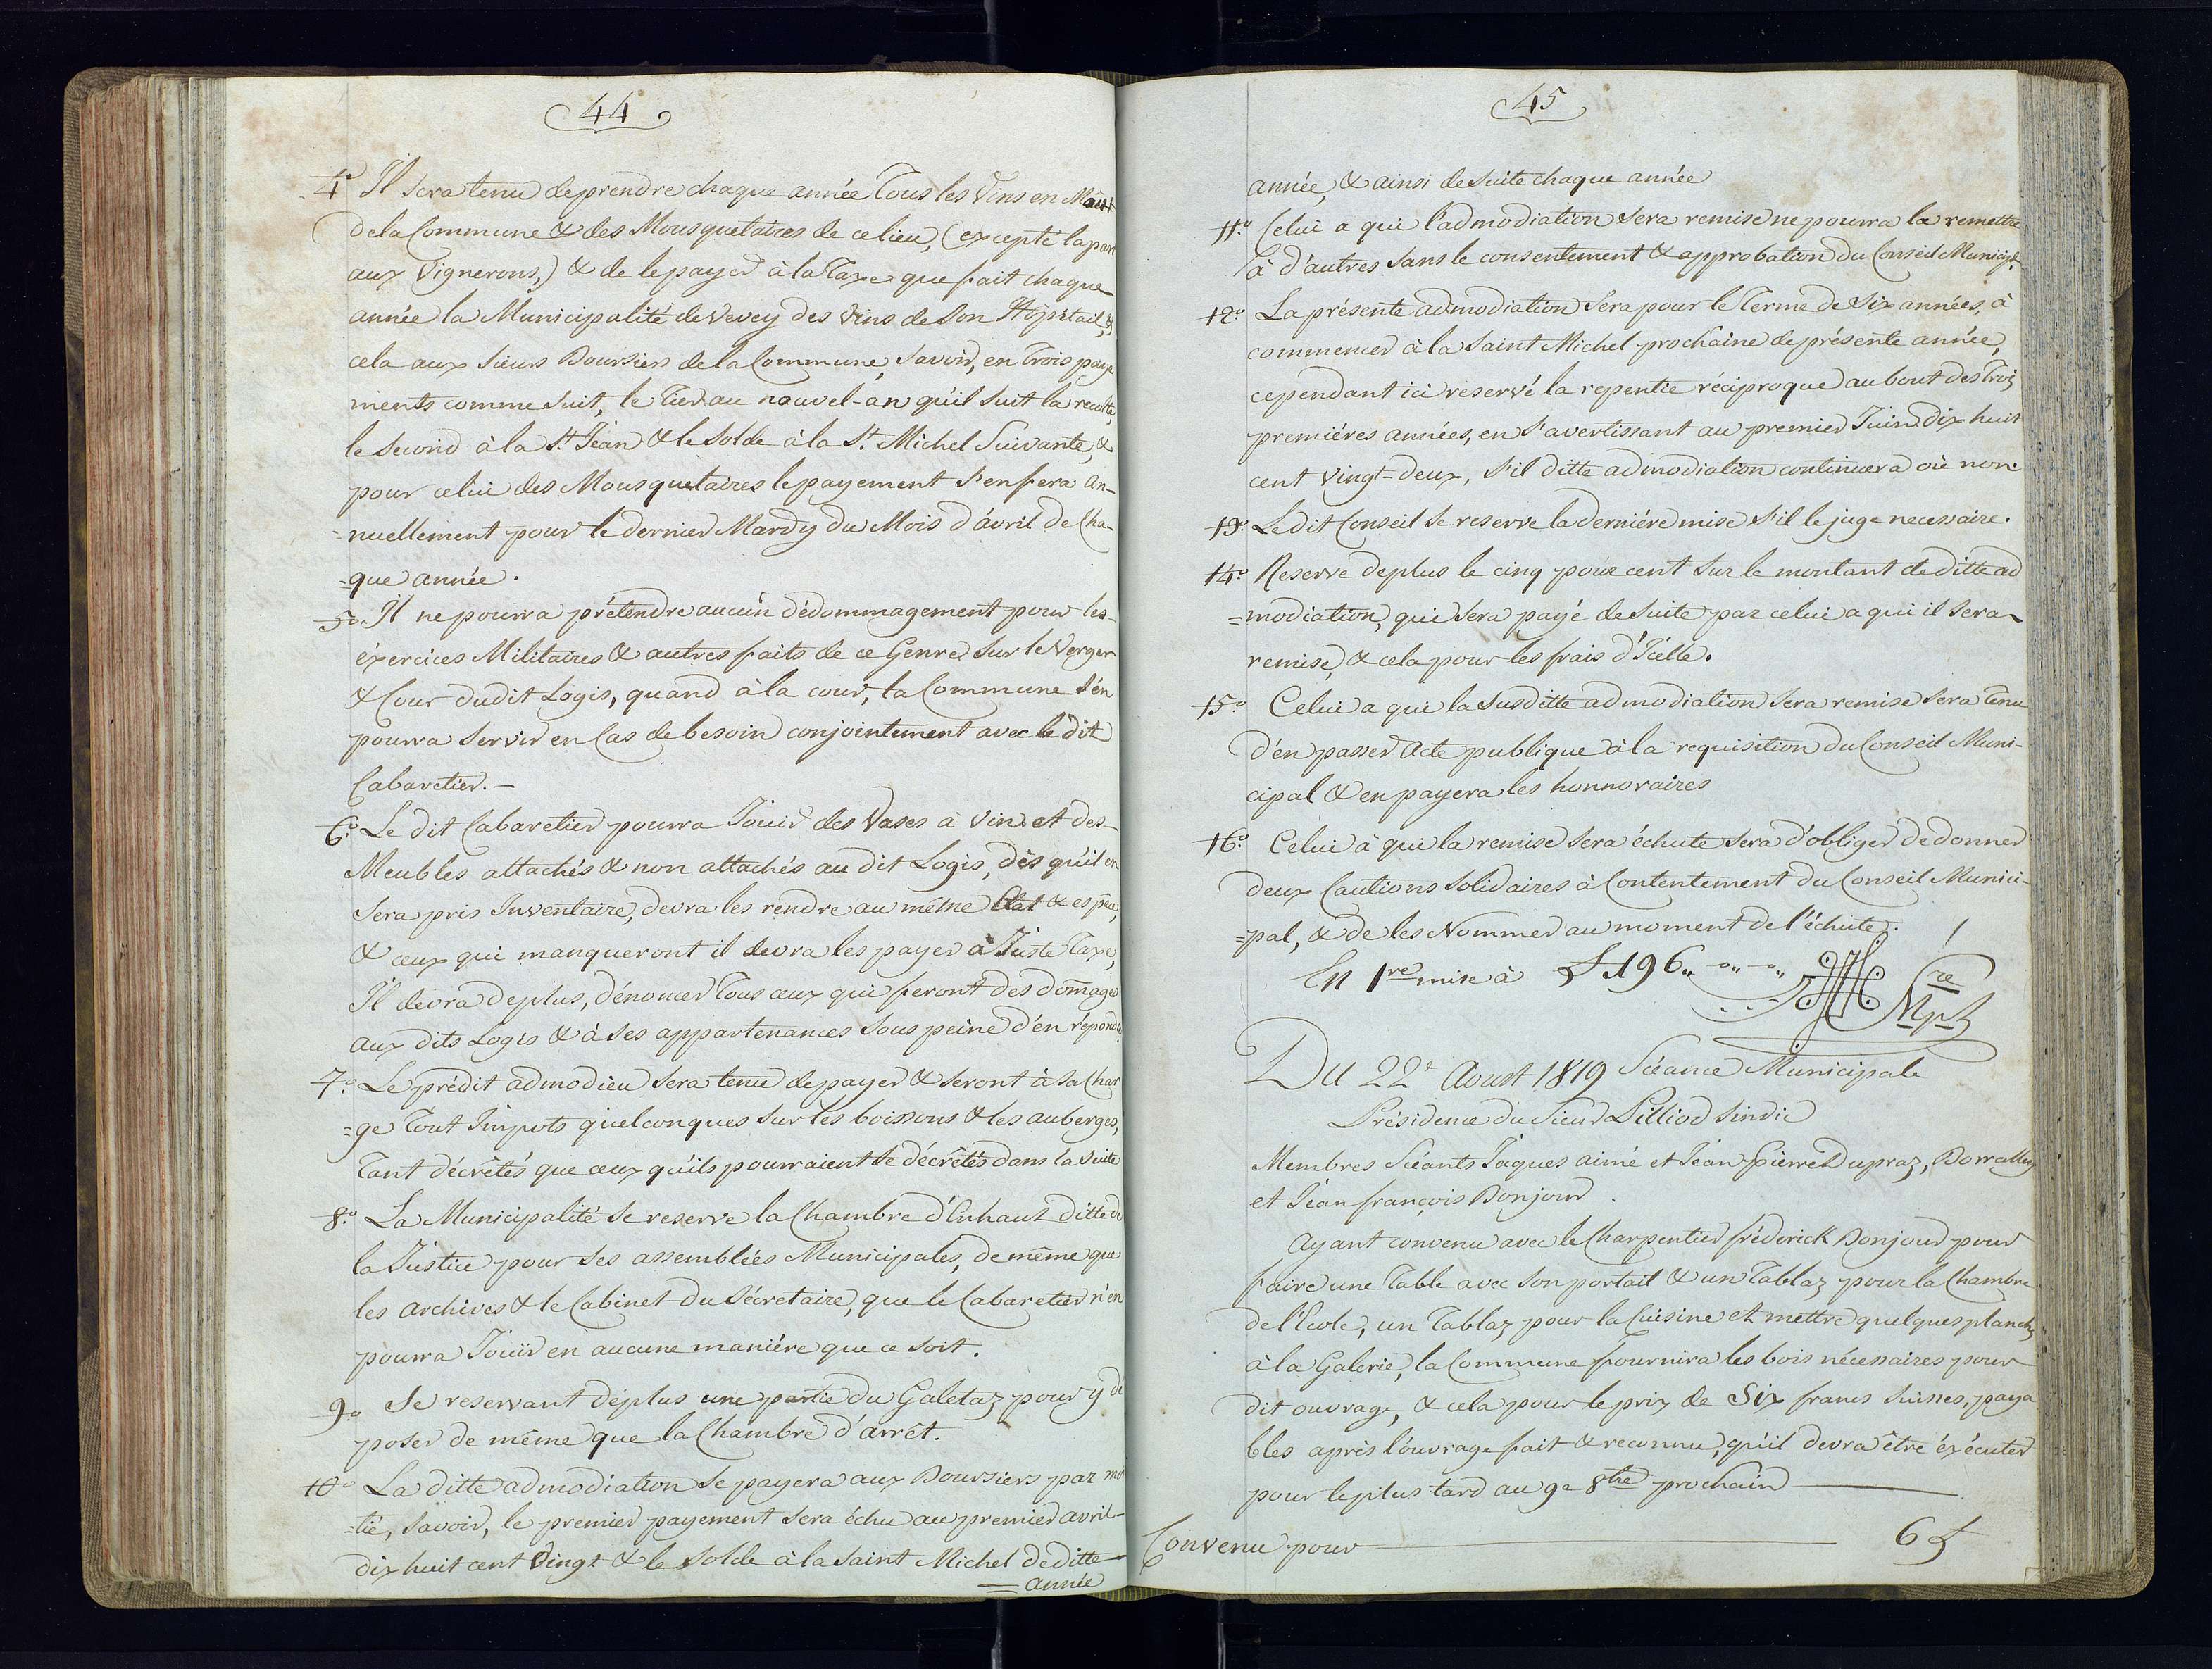 44
4.º Il sera tenu de prendre chaque année tous les Vins en Mout
de la Commune & des Mousquetaires de ce lieu, (excepté la part
aux Vignerons,) & de le payer à la Taxe que fait chaque
année la Municipalité de Vevey des Vins de Son Hôpitail, &
cela aux Sieurs Boursiers de la Commune, Savoir, en trois paye
ments comme suit, le Tier au nouvel-an qu'il suit la recolte,
le second à la S.t Jéan & le Solde à la S.t Michel Suivante, &
pour celui des Mousquetaires le payement s'en fera an-
=nuellement pour le dernier Mardy du Mois d'avril de Cha-
=que année.
5.º Il ne pourra prétendre aucun dédommagement pour les
éxercices Militaires & autres faits de ce Genre Sur le Verger
& Cour dudit Logis, quand à la cour, la Commune s'én
pourra servir en Cas de besoin conjointement avec le dit
Cabaretier.—
6.º Le dit Cabaretier pourra Jouir des Vases à Vin et des
Meubles attachés & non attachés au dit Logis, dès qu'il en
Sera pris Inventaire, devra les rendre au même Etat & espèce,
& ceux qui manqueront il devra les payer à Juste Taxe,
Il devra deplus, dénoncer Tous ceux qui feront des domages
aux dits Logis & à ses appartenances sous peine d'en répondre
7.º Le prédit admodieu sera tenu de payer & seront à sa Char
=ge Tout Impots quelconques sur les boissons & les auberges,
Tant décrêtés que ceux qu'ils pourraient se décrêtés dans la suite
8.º La Municipalité se reserve la Chambre d'Enhaut ditte de
la Justice pour ses assemblées Municipales, de même que
les archives & le Cabinet du Sécretaire, que le Cabaretier n'en
pourra Jouïr en aucune maniére que ce soit.
9.º Se reservant déplus une partie du Galetaz pour y dé
poser de même que la Chambre d'arrêt.
10.º La ditte admodiation se payera aux Boursiers par moi
=tié, Savoir, le premier payement sera échu au premier avril-
dix huit cent Vingt & le solde à la saint Michel de ditte
= année
45
année, & ainsi de suite chaque année
11.º Celui a qui l'admodiation sera remise ne pourra la remettre
à d'autres sans le consentement & approbation du Conseil Municipl.
12.º La présente admodiation sera pour le Terme de Six années, à
commencer à la Saint Michel prochaine de présente année,
cependant ici réservé la repentie réciproque au bout des Trois
premiéres années, en s'avertissant au premier Juin dix huit
cent Vingt-deux, s'il ditte admodiation continuera où non.
13.º Le dit Conseil se reserve la derniére mise s'il le juge necessaire.
14.º Reserve deplus le cinq pour cent sur le montant de ditte ad
=modiation, qui sera payé de suite par celui a qui il sera
remise, & cela pour les frais d'Icelle.
15.º Celui a qui la susditte admodiation sera remise sera tenu
d'en passer acte publique à la requisition du Conseil Muni-
cipal & en payera les honnoraires
16.º Celui à qui la remise sera échute sera d'obliger de donner
deux Cautions solidaires à Contentement du Conseil Munici-
=pal, & de les Nommer au moment de l'échute.
En 1.re mise à £ 196 „ -„ -„
Du 22e Aoust 1819 Séance Municipale
Présidence du Sieur Pilliod Sindic
Membres Séants Jaques aimé et Jéan Piérre Dupraz, Borcalley
et Jéan françois Bonjour.
Ayant convenu avec le Charpentier fréderick Bonjour pour
faire une Table avec son portait & un Tablaz pour la Chambre
de l'école, un Tablaz pour la Cuisine et mettre quelques planches
à la Galerie, la Commune fournira les bois nécessaires pour
dit ouvrage, & cela pour le prix de Six francs Suisses, paya
bles après l'ouvrage fait & reconnu, qu'il devra être éxécuter
pour le plus tard au 9e 8bre prochain
Convenu pour 6 £